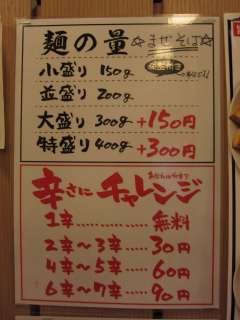 麺の量
☆まぜそば☆
小盛り 150g
並盛り 200g
大盛り 300g +150円
特盛り 400g +300円
辛さにチャレンジ
1辛…………無料
2辛～3辛……30円
4辛～5辛……60円
6辛～7辛……90円